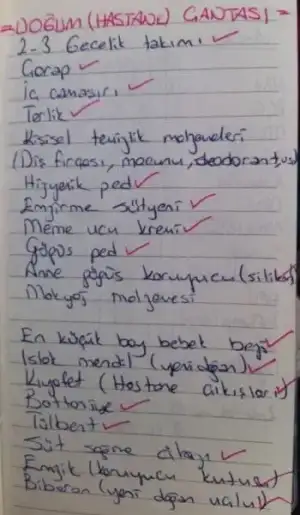 =DOĞUM (HASTANE) ÇANTASI=
2-3 Gecelik takımı ✓
Çorap ✓
İç çamaşırı ✓
Terlik ✓
Kişisel temizlik malzemeleri
(Diş fırçası, macunu, deodorant, vs)
Hijyenik ped ✓
Emzirme sütyeni ✓
Meme ucu kremi ✓
Göğüs ped ✓
Anne göğüs koruyucu (silikon)
Makyaj malzemesi
En küçük boy bebek bezi ✓
Islak mendil (yeni doğan) ✓
Kıyafet (Hastane çıkışları) ✓
Battaniye ✓
Tülbent ✓
Süt sağma cihazı ✓
Emzik (koruyucu kutusu) ✓
Biberon (yeni doğan uçlu) ✓